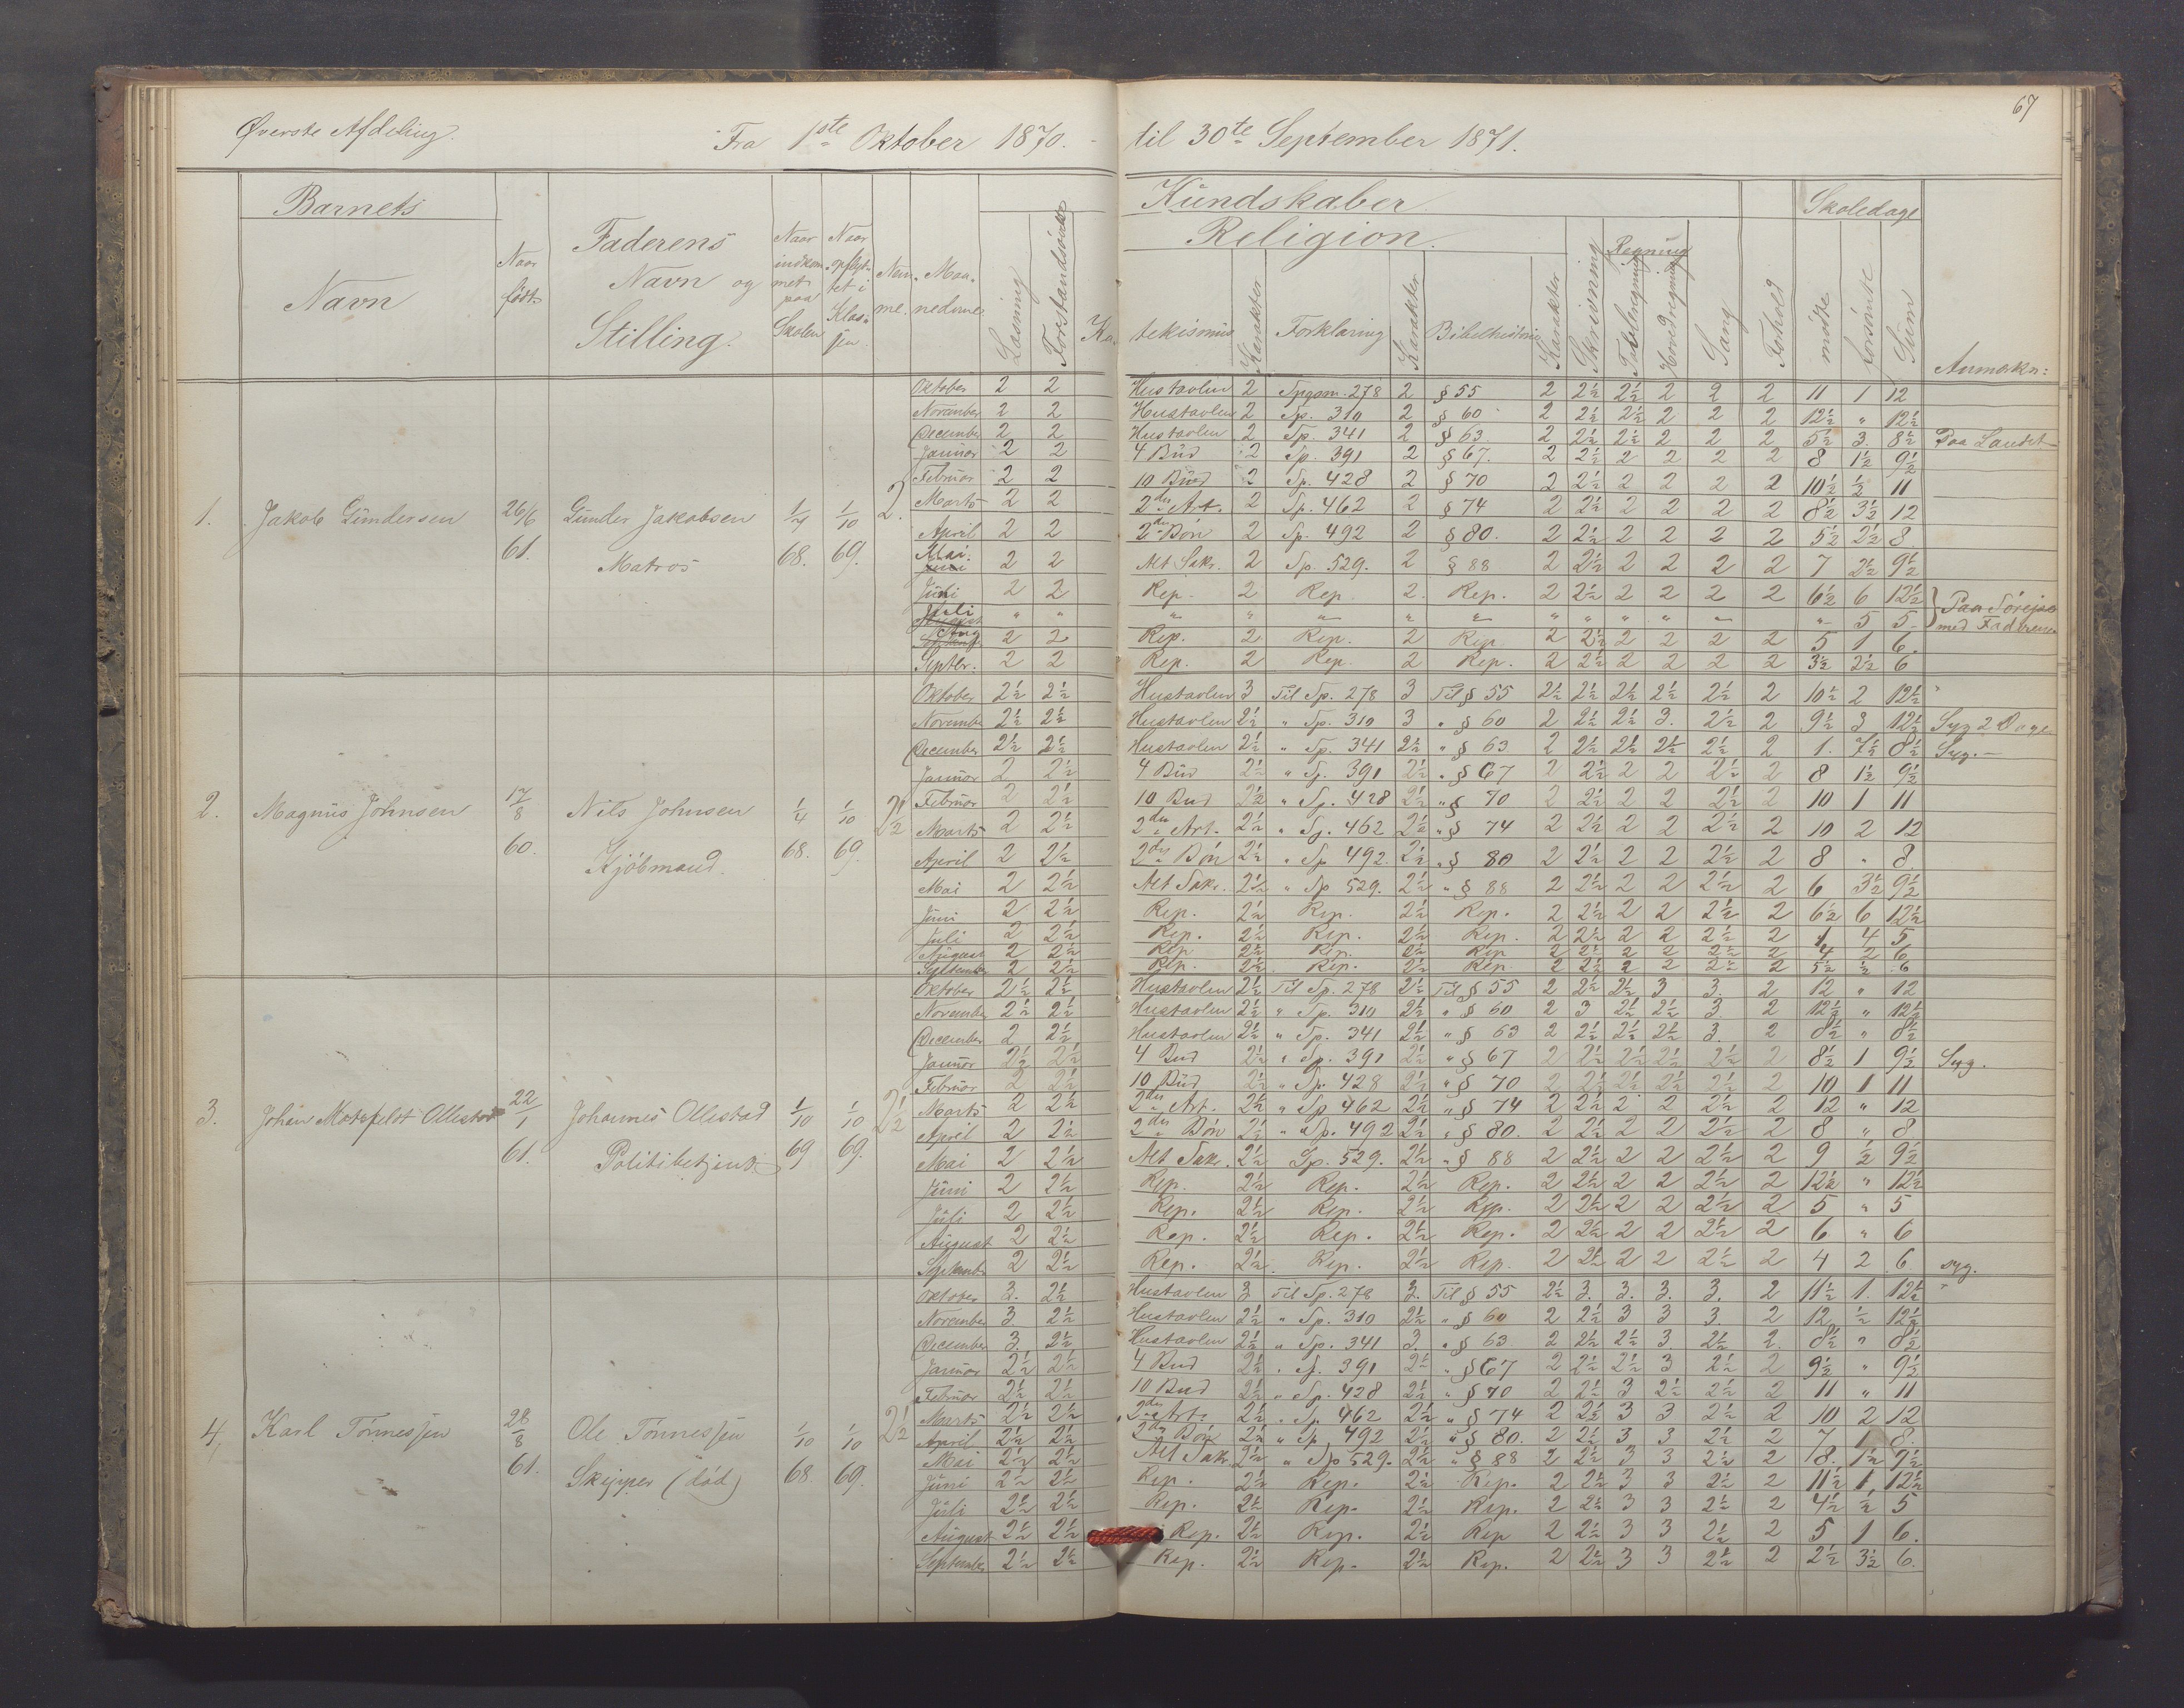 67
Øverste Afdeling. Fra 1ste Oktober 1870. - til 30te September 1871.
Barnets Kundskaber Skoledage
Navn Naar født Faderens Navn og Stilling. Naar indkommet paa Skolen Naar opflyttet i Klassen Numme. Maanederne Læsning Forstandsøvelse Religion. Katekismus Karakter Forklaring Karakter Bibelhistorie Karakter Skrivning Regning Tabelregning Hovedregning Sang Forhold mødte forsømte Sum Anmærkn:
1. Jakob Gundersen 26/6 61. Gunder Jakobsen Matros 1/7 68. 1/10 69. 2.
Oktober 2 2 Hustavlen 2 Spgsm. 278 2 § 55 2 2½ 2½ 2 2 2 11 1 12
November 2 2 Hustavlen 2 Sp. 310 2 § 60 2 2½ 2½ 2 2 2 12½ " 12½
December 2 2 Hustavlen 2 Sp. 341 2 § 63. 2 2½ 2½ 2 2 2 5½ 3. 8½ Paa Landet
Januar 2 2 4 Bud 2 Sp. 391 2 § 67. 2 2½ 2 2 2 2 8 1½ 9½
Februar 2 2 10 Bud 2 Sp. 428 2 § 70 2 2½ 2 2 2 2 10½ ½ 11
Marts 2 2 2den Art. 2 Sp. 462 2 § 74 2 2½ 2 2 2 2 8½ 3½ 12
April 2 2 2den Bøn 2 Sp. 492 2 § 80. 2 2½ 2 2 2 2 5½ 2½ 8
Mai. 2 2 Alt. Sakr. 2 Sp. 529. 2 § 88 2 2½ 2 2 2 2 7 2½ 9½
Juni 2 2 Rep. 2 Rep. 2. Rep. 2 2½ 2 2 2 2 6½ 6 12½ } Paa Sørejse
Juli " " " " " " " " " " " " " " 5 5 med Faderen
Aug 2 2 Rep. 2 Rep. 2 Rep 2 2½ 2 2 2 2 5 1 6.
Septbr. 2 2 Rep. 2 Rep. 2 Rep. 2 2½ 2 2 2 2 3½ 2½ 6
2. Magnus Johnsen 17/8 60. Nils Johnsen Kjøbmand. 1/4 68. 1/10 69. 2½
Oktober 2½ 2½ Hustavlen 3 Til Sp. 278 3 Til § 55 2½ 2½ 2½ 2½ 2½ 2 10½ 2 12½
November 2½ 2½ Hustavlen 2½ " Sp. 310 3 " § 60 2 2½ 2½ 3. 2½ 2 9½ 3 12½ Syg 2 Dage
December 2½ 2½ Hustavlen 2½ " Sp. 341 2½ " § 63 2 2½ 2½ 2½ 2½ 2 1. 7½ 8½ Syg. -
Januar 2 2½ 4 Bud 2½ " Sp. 391 2½ " § 67 2 2½ 2 2 2½ 2 8 1½ 9½
Februar 2 2½ 10 Bud 2½ " Sp. 428 2½ " § 70 2 2½ 2 2 2½ 2 10 1 11
Marts 2 2½ 2den Art. 2½ " Sp. 462 2½ " § 74 2 2½ 2 2 2½ 2 10 2 12
April 2 2½ 2den Bøn 2½ " Sp 492. 2½ " § 80 2 2½ 2 2 2½ 2 8 " 8
Mai 2 2½ Alt Sakr. 2½ " Sp 529. 2½ " § 88 2 2½ 2 2 2½ 2 6 3½ 9½
Juni 2 2½ Rep. 2½ Rep. 2½ Rep. 2 2½ 2 2 2½ 2 6½ 6 12½
Juli 2 2½ Rep. 2½ Rep. 2½ Rep. 2 2½ 2 2 2½ 2 1 4 5
August 2 2½ Rep 2½ Rep. 2½ Rep 2 2½ 2 2 2½ 2 4 2 6
September 2 2½ Rep. 2½ Rep. 2½ Rep 2 2½ 2 2 2½ 2 5½ ½ 6
3. Johan Motzfeldt Ollestad 22/1 61. Johannes Ollestad Politibetjent 1/10 69 1/10 69. 2½
Oktober 2½ 2½ Hustavlen 2½ Til Sp. 278 2½ Til § 55 2 2½ 2½ 3 3. 2 12 " 12
November 2½ 2½ Hustavlen 2½ " Sp. 310 2½ " § 60 2 3 2½ 2½ 3. 2 12½ " 12½
December 2 2½ Hustavlen 2½ " Sp. 341 2½ " § 63 2 2½ 2½ 2½ 3. 2 8½ " 8½
Januar 2½ 2½ 4 Bud 2½ " Sp. 391 2½ " § 67 2 2½ 2½ 2½ 2½ 2 8½ 1 9½ Syg.
Februar 2 2½ 10 Bud 2½ " Sp. 428 2½ " § 70 2 2½ 2½ 2½ 2½ 2 10 1 11
Marts 2 2½ 2den Art. 2½ " Sp 462 2½ " § 74 2 2½ 2 2 2½ 2 12 " 12
April 2 2½ 2den Bøn 2½ " Sp. 492 2½ " § 80. 2 2½ 2 2 2½ 2 8 " 8
Mai 2 2½ Alt Sakr. 2½ Sp. 529. 2½ " § 88 2 2½ 2 2 2½ 2 9 ½ 9½
Juni 2 2½ Rep. 2½ Rep. 2½ Rep. 2 2½ 2 2 2½ 2 12½ " 12½
Juli 2 2½ Rep. 2½ Rep. 2½ Rep. 2 2½ 2 2 2½ 2 5 " 5
August 2 2½ Rep. 2½ Rep. 2½ Rep. 2 2½ 2 2 2½ 2 6 " 6
Septembr 2 2½ Rep. 2½ Rep. 2½ Rep. 2 2½ 2 2 2½ 2 4 2 6. syg.
4, Karl Tønnessen 28/8 61. Ole Tønnessen Skipper (død) 1/10 68 1/10 69. 2½
Oktober 3. 2½ Hustavlen 3 Til Sp. 278 3. Til § 55 2½ 3. 3. 3. 3. 2 11½ 1. 12½
November 3. 2½ Hustavlen 2½ " Sp. 310 2½ " § 60 2 2½ 3 3 3. 2 12 ½ 12½
December 3. 2½ Hustavlen 2½ " Sp. 341 3. " § 63 2 2½ 2½ 3 2½ 2. 8½ " 8½
Januar 2½ 2½ 4 Bud 2½ " Sp. 391 2½ " § 67 2 2½ 2½ 3 2½ 2 9½ " 9½
Februar 2½ 2½ 10 Bud 2½ " Sp. 428 2½ " § 70 2 2½ 3 2½ 2½ 2 11 " 11
Marts 2½ 2½ 2den Art. 2½ " Sp. 462 2½ " § 74 2 2½ 3 3 2½ 2 10 2 12
April 2½ 2½ 2den Bøn 2½ " Sp. 492 2½ " § 80. 2 2½ 3 3 2½ 2 7 1 8.
Mai 2½ 2½ Alt Sakr. 2½ " Sp 529. 2½ " § 88 2 2½ 3 3 2½ 2 8. 1½ 9½
Juni 2½ 2½ Rep. 2½ Rep. 2½ Rep. 2 2½ 3 3 2½ 2 11½ 1 12½
Juli 2½ 2½ Rep. 2½ Rep. 2½ Rep. 2 2½ 3 3 2½ 2 4½ ½ 5
August 2½ 2½ Rep. 2½ Rep. 2½ Rep 2 2½ 3 3 2½ 2 5 1 6.
September 2½ 2½ Rep. 2½ Rep. 2½ Rep. 2 2½ 3 3 2½ 2 2½ 3½ 6.